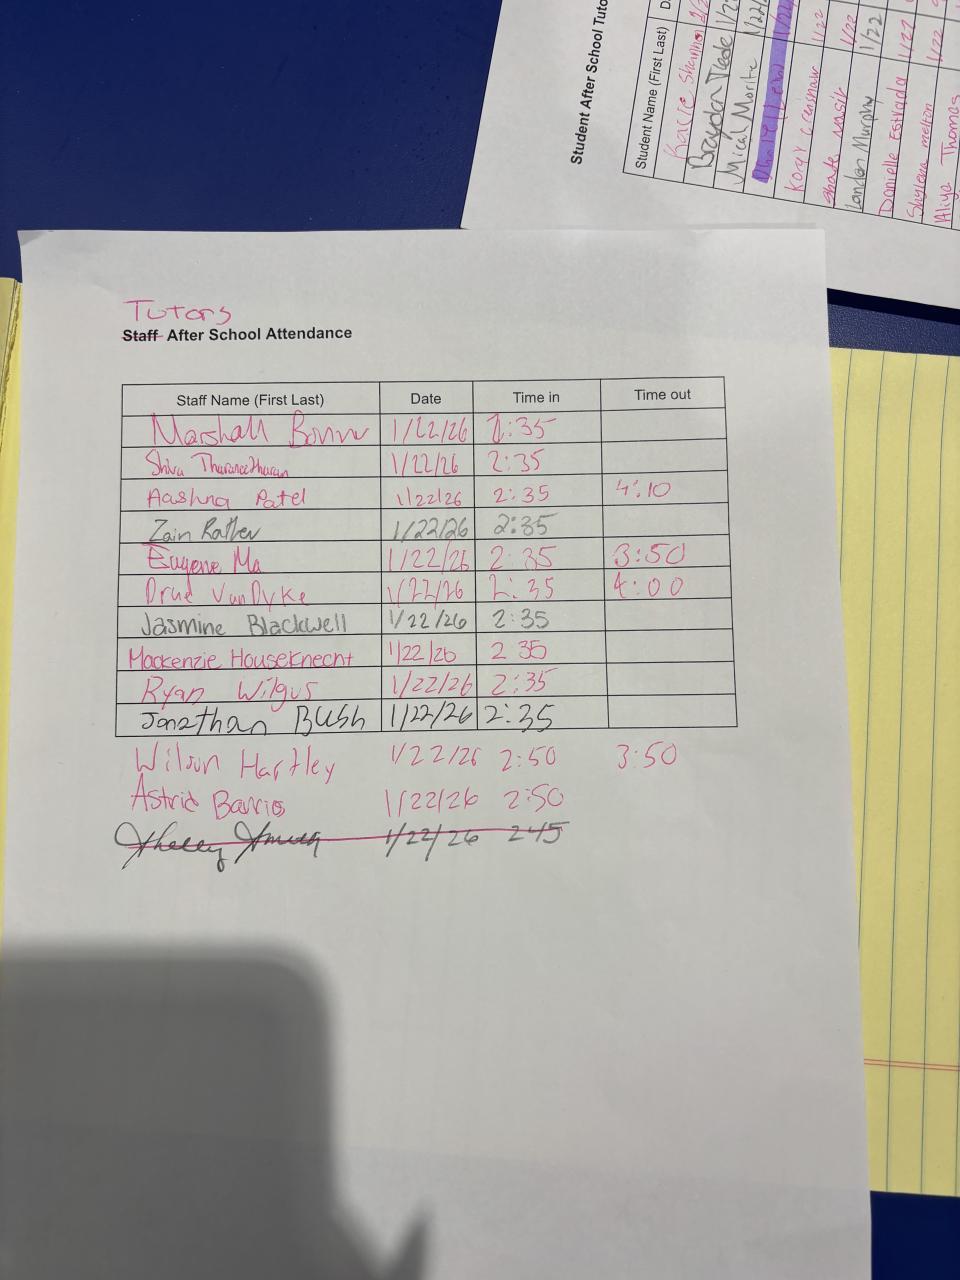 Tutors
Staff After School Attendance
Staff Name (First Last) Date Time in Time out
Marshall 1/22/26 2:35
Shiva 1/22/26 2:35
Aashna Patel 1/22/26 2:35 4:10
Zain 1/22/26 2:35
Eugene Ma 1/22/26 2:35 3:50
Drue VanDyke 1/22/26 2:35 4:00
Jasmine Blackwell 1/22/26 2:35
Mackenzie Houseknecht 1/22/26 2 35
Ryan Wilgus 1/22/26 2:35
Jonathan Bush 1/22/26 2:35
Wilson Hartley 1/22/26 2:50 3:50
Astrid Barrios 1/22/26 2:50
1/22/26 245
Student After School
Student Name (First Last)
Kacie Shannon
Brayden
Mical
Koray Crenshaw 1/22
1/22
Landon Murphy 1/22
Danielle Estrada 1/22
Shylena melton 1/22
Aliya Thomas